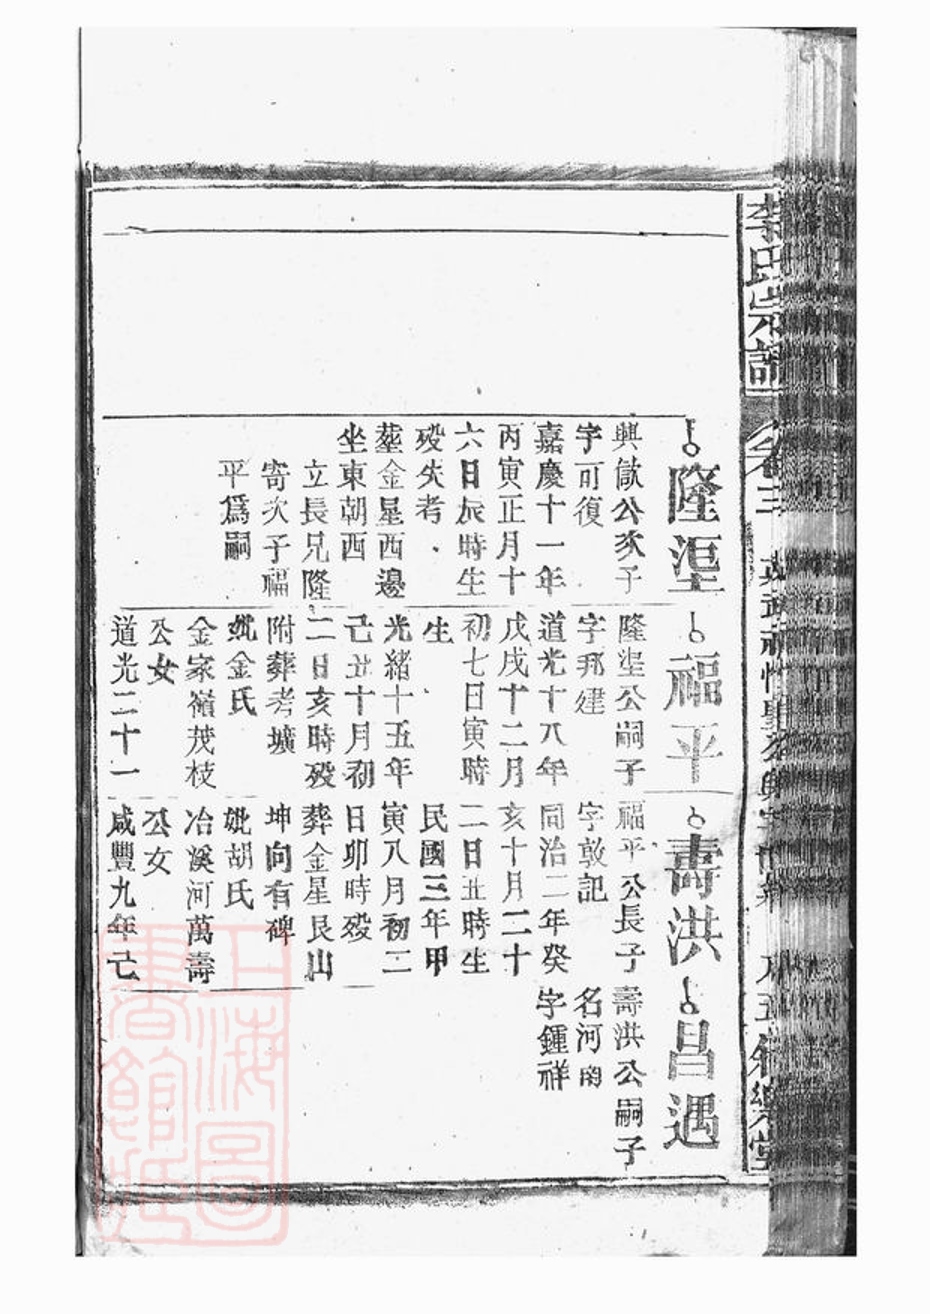 李氏宗譜
卷三
隆渥
興俶公次子
字可復
嘉慶十一年
丙寅正月十
六日辰時生
歿失考
葬金星西邊
坐東朝西
立長兄隆
寄次子福
平爲嗣
福平
隆渥公嗣子
字邦建
道光十八年
戊戌十二月
初七日寅時
生
光緒十五年
己丑十月初
二日亥時歿
附葬考壙
妣金氏
金家嶺茂枝
公女
道光二十一
壽洪
福平公長子
字敦記
同治二年癸
亥十月二十
二日丑時生
民國三年甲
寅八月初二
日卯時歿
葬金星艮山
坤向有碑
妣胡氏
冶溪河萬壽
公女
咸豐九年己
昌遇
壽洪公嗣子
名河南
字鍾祥
上海圖
書館藏